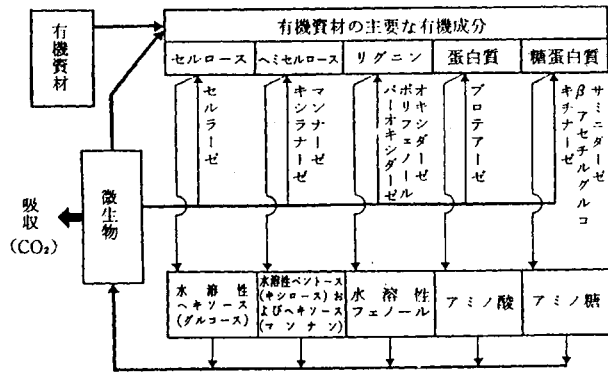 有機資材の主要な有機成分
有機資材
セルロース
ヘミセルロース
リグニン
蛋白質
糖蛋白質
セルラーゼ
マンナーゼ
キシラナーゼ
オキシダーゼ
ポリフェノール
パーオキシダーゼ
プロテアーゼ
サミニダーゼ
β アセチルグルコ
キチナーゼ
微生物
吸収
(CO₂)
水溶性
ヘキソース
(グルコース)
水溶性ペントース
(キシロース)お
よびヘキソース
(マンナン)
水溶性
フェノール
アミノ酸
アミノ糖